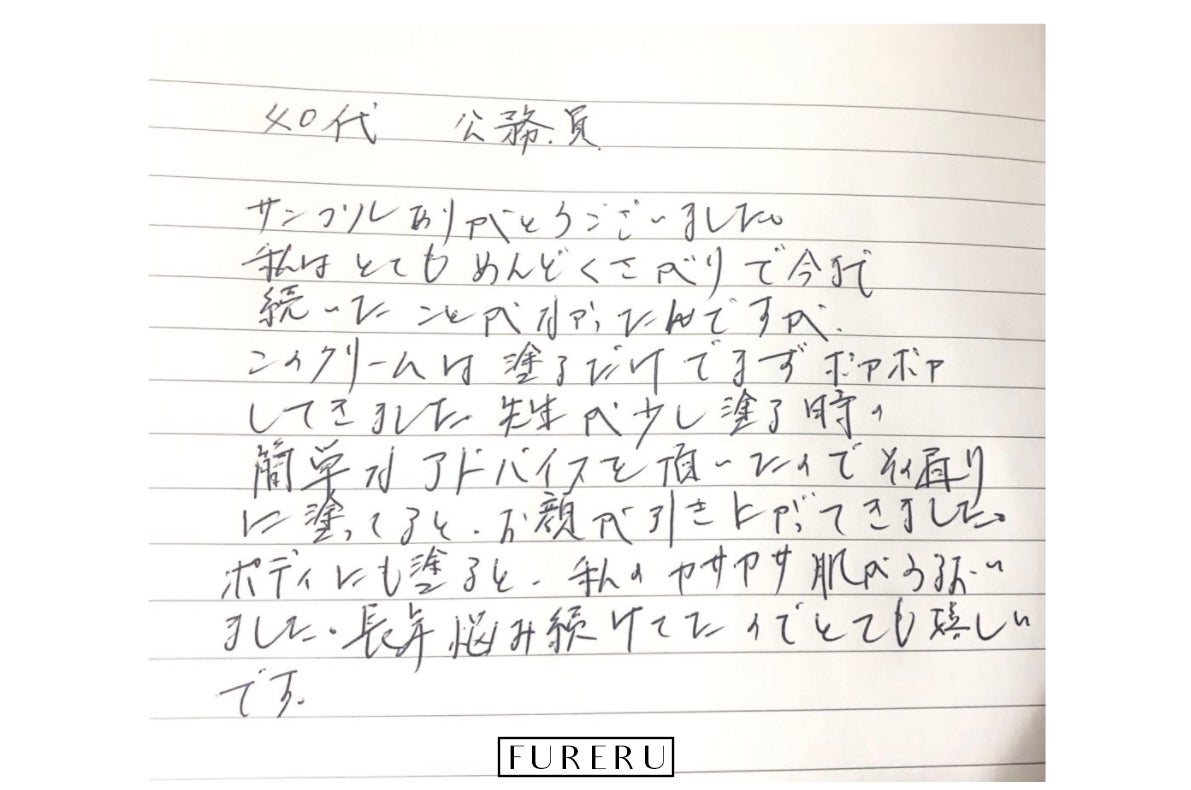 40代 公務員
サンプルありがとうございました。
私はとてもめんどくさがりで今まで
続いたことがなかったんですが、
このクリームは塗るだけでまずポカポカ
してきました。先生が少し塗る時の
簡単なアドバイスを頂いたのでその通り
に塗ってると、お顔が引き上がってきました。
ボディにも塗ると、私のカサカサ肌がうるおい
ました。長年悩み続けてたのでとても嬉しい
です。
FURERU